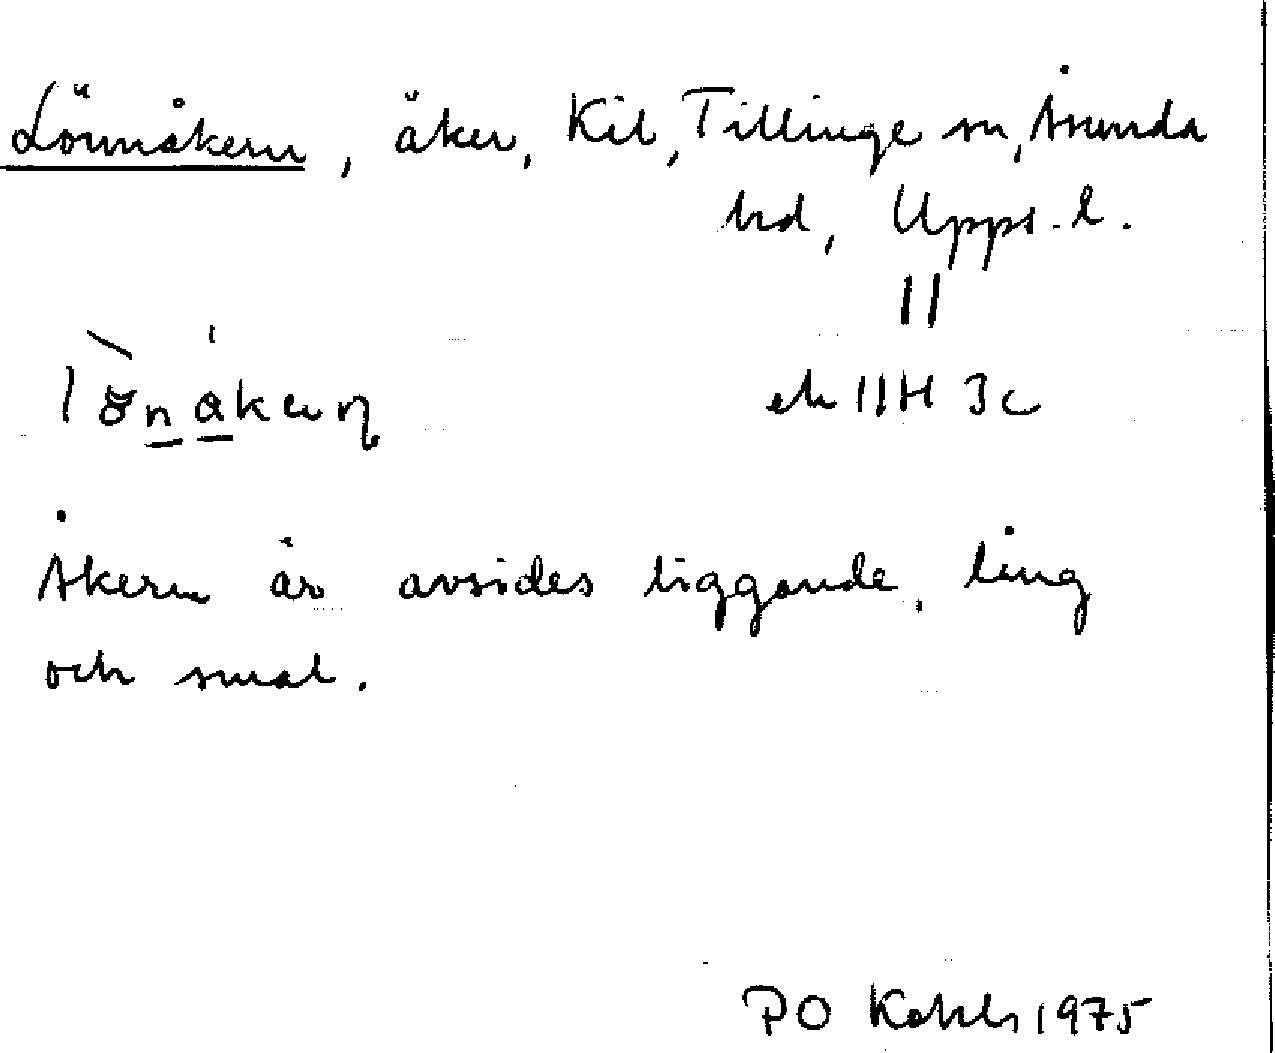 Lönnåkern, åker, Kil, Tillinge sn, Åsunda
hd, Upps. l.
||
lönåkeɳ
ek 11H 3c
Åkern är avsides liggande, lång
och smal.
PO 1975